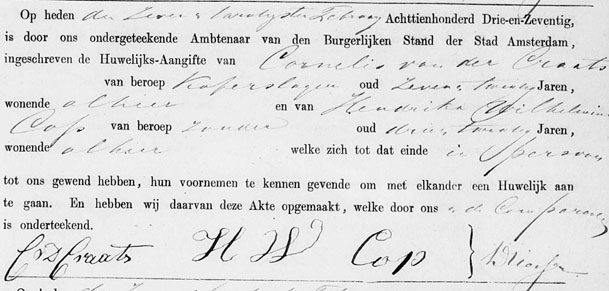 Op heden den Zeven & twintigsten Februarij Achttienhonderd Drie-en-Zeventig,
is door ons ondergeteekende Ambtenaar van den Burgerlijken Stand der Stad Amsterdam,
ingeschreven de Huwelijks-Aangifte van Cornelis van der Craats
van beroep Koperslager oud Zeven & twintig Jaren,
wonende alhier en van Hendrika Wilhelmina
Cop van beroep zonder oud drie & twintig Jaren,
wonende alhier welke zich tot dat einde in Persoon
tot ons gewend hebben, hun voornemen te kennen gevende om met elkander een Huwelijk aan
te gaan. En hebben wij daarvan deze Akte opgemaakt, welke door ons & de Comparanten
is onderteekend.
CvD Craats H W Cop